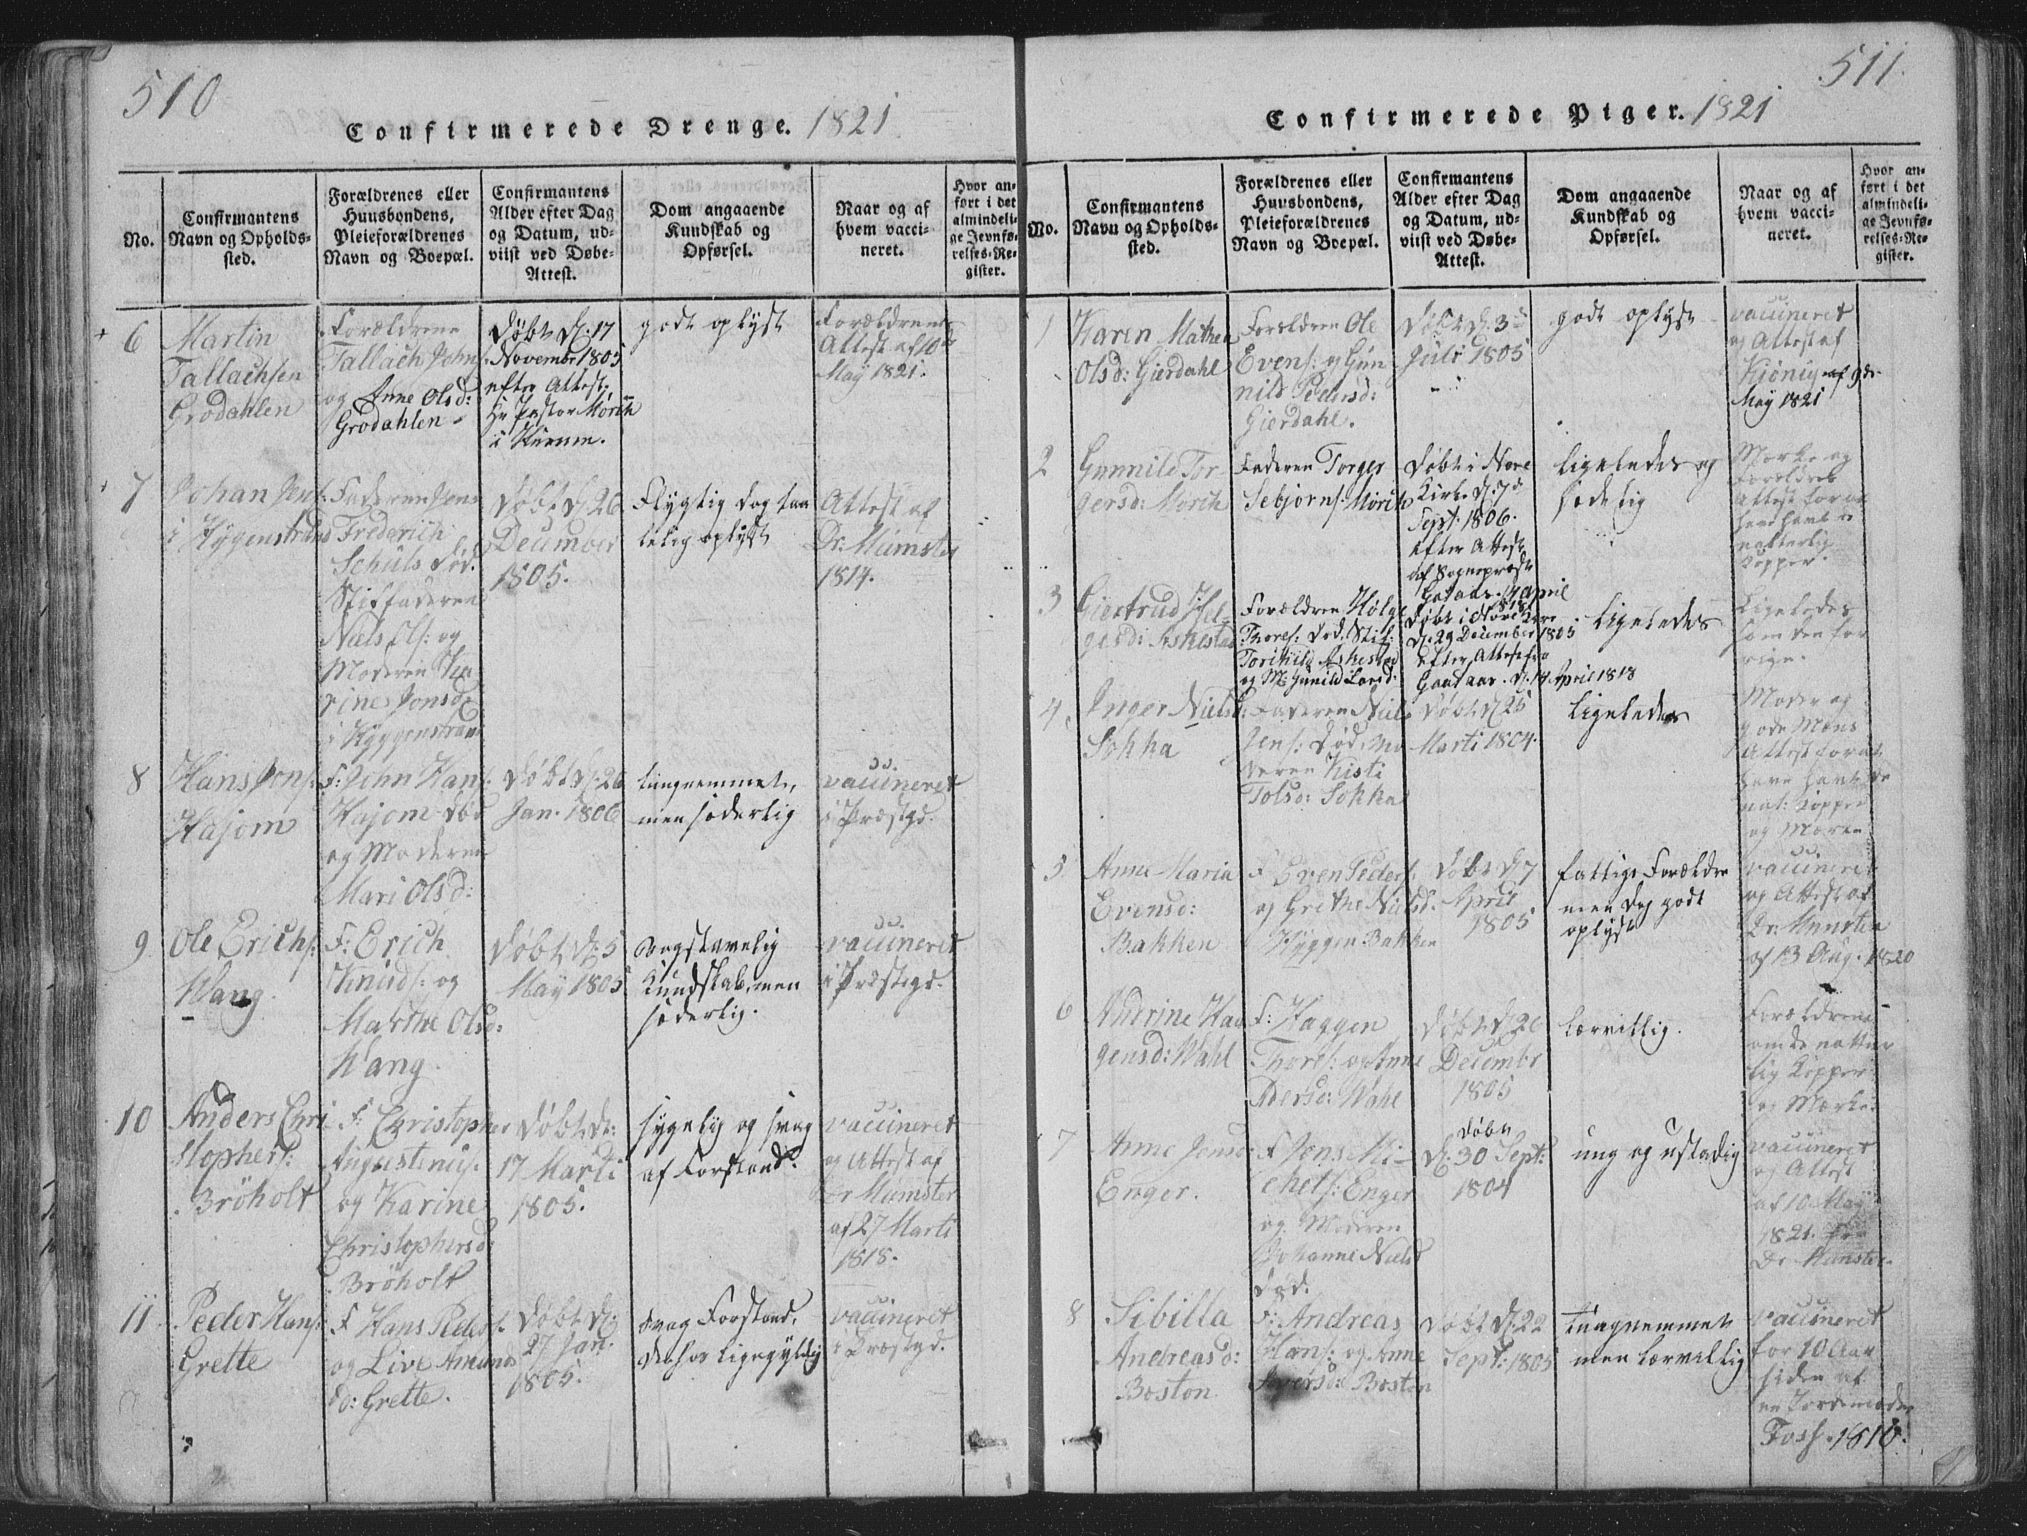 510
Confirmerede Drenge. 1821
No.
Confirmantens
Navn og Opholds-
sted.
Forældrenes eller
Huusbondens,
Pleieforældrenes
Navn og Boepæl.
Confirmantens
Alder efter Dag
og Datum, ud-
viist ved Døbe-
Attest.
Dom angaaende
Kundskab og
Opførsel.
Naar og af
hvem vacci-
neret.
Hvor an-
ført i det
almindeli-
ge Jevnfø-
relses-Re-
gister.
6
Martin
Tallachsen
Grodahlen
Forældrene
Tallach Johns:
og Anne Olsd:
Grodahlen
Døbt d. 17
November 1805
efter Attest
Hr Pastor Mörch
i
godt oplyst
Forældrene
Attest af 10de
May 1821.
7
Johan Jens:
i Hygenstrand
Faderen Jens
Frederich
Schüls død.
Stiffaderen
Niels Ols: og
Moderen Ka
rine Jonsd
i Hyggenstrand
Døbt d. 26
December
1805.
Flygtig dog taa
lelig oplyst
Attest af
Dr: Münster
1814.
8
Hans Jons:
Hajom
F: John Hans:
Hajom død
og Moderen
Mari Olsd:
Døbt d. 26
Jan. 1806
tungnemmet,
men sæderlig
vaccineret
i Præstgd.
9
Ole Erichs:
Wang
F: Erich
Knuds: og
Marthe Olsd:
Wang.
Døbt d. 5
May 1805
Bogstavelig
Kundskab, men
sæderlig.
vaccineret
i Præstegd.
10
Anders Chri
stophers:
Bröholt
F: Christopher
Augustinus:
og Karine
Christophersd:
Bröholt
Døbt d:
17 Marti
1805.
sygelig og svag
af Forstand.
vaccineret
og Attest af
Dr Münster
af 27 Marti
1818.
11
Peder Hans:
Grette
F Hans Peders:
og Live Amunds
d: Grette.
Døbt d:
27 Jan.
1805.
svag Forstand,
derhos ligegyldig
vaccineret
i Præstgd.
511.
Confirmerede Piger. 1821
No.
Confirmantens
Navn og Opholds-
sted.
Forældrenes eller
Huusbondens,
Pleieforældrenes
Navn og Boepæl.
Confirmantens
Alder efter Dag
og Datum, ud-
viist ved Døbe-
Attest.
Dom angaaende
Kundskab og
Opførsel.
Naar og af
hvem vacci-
neret.
Hvor an-
ført i det
almindeli-
ge Jevnfø-
relses-Re-
gister.
1
Karen Mathea
Olsd: Gierdahl
Foreldren Ole
Evens: og Gun
nild Pedersd:
Gierdahl.
Døbt d. 3de
Juli 1805
godt oplyst
vaccineret
og Attest af
Kiönig af 9de
May 1821
2
Gunnild Tor
gersd: Mörch
Faderen Torger
Sebjørns: Mörch
Døbt i Nore
Kirke d. 7de
Sept. 1806.
efter Attest
af Sognepræst
Gaaaar. 14 April
1818
ligeledes og
sædelig
Mærke og
Forældres
Attest for at
have havt de
naturlig
Kopper.
3
Giertrud Hel
gesd: Askestad
Forældren Hölge
Thores: død. Stif:
Torchild Askestad
og M: Gunild Larsd:
Døbt i Nore Kirke
d. 29 December 1805
efter Attest fra
Gaaaar. d. 14 April 1818
ligeledes
Ligeledes
som den for
rige.
4
Inger Nielsd:
Sokka
Faderen Niels
Jens: død, Mo
deren Kisti
Tolsd: Sokka
Døbt d. 25
Marti 1804.
ligeledes
Moder og
gode Mæns
Attest for at
have havt de
nat: Kopper
og Mærke
5
Anne Maria
Evensd:
Bakken
F Even Peders:
og Grethe Nielsd.
Hyggen Bakken
Døbt d. 7
April
1805
fattige Forældre
men dog godt
oplyst
vaccineret
og Attest af
Dr: Munster
af 13 Aug. 1820
6
Andrine Haa
gensd: Wahl
F: Haggen
Thors: og Anne
Pedersd: Wahl
Døbt d. 26
Decembr
1805
lærvillig.
Forældrene
om de nattur
lig Kopper
og Mærke.
7
Anne Jensd:
Enger.
F Jens Mi-
chels: Enger
og Moderen
Johanne Niels
død.
døbt
d. 30 Sept:
1804
ung og ustadig
vaccineret
og Attest
af 10 May
1821 fra
Dr Münster
8
Sibilla
Andreasd:
Boston
F: Andreas
Hans: og Anne
Iversd: Boston
Døbt d. 22
Sept: 1805
tungnemmet
men lærvillig
vaccineret
for 10 Aar
siden af
en Jordemoder
Foss. 1810.